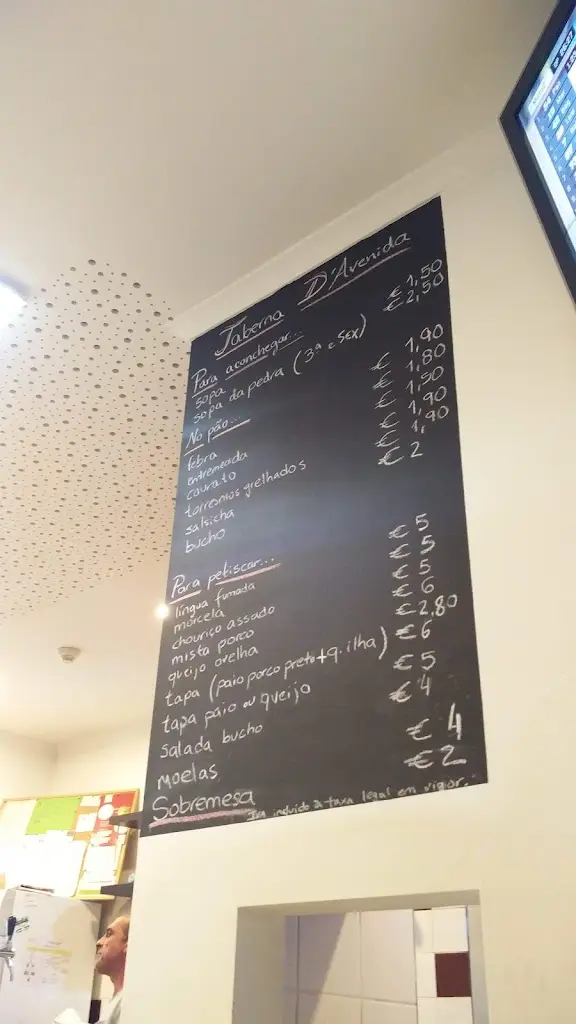 Taberna D'Avenida
Para aconchegar...
sopa € 1,50
sopa da pedra (3ª e SEX) € 2,50
No pão...
febra € 1,90
entremeada € 1,80
courato € 1,50
torresmos grelhados € 1,90
salsicha € 1,90
bucho € 2
Para petiscar...
língua fumada € 5
morcela € 5
chouriço assado € 5
mista porco € 6
queijo ovelha € 2,80
tapa (paio porco preto + q. ilha) € 6
tapa paio ou queijo € 5
salada bucho € 4
moelas € 4
Sobremesa € 2
Iva incluido à taxa legal em vigor.